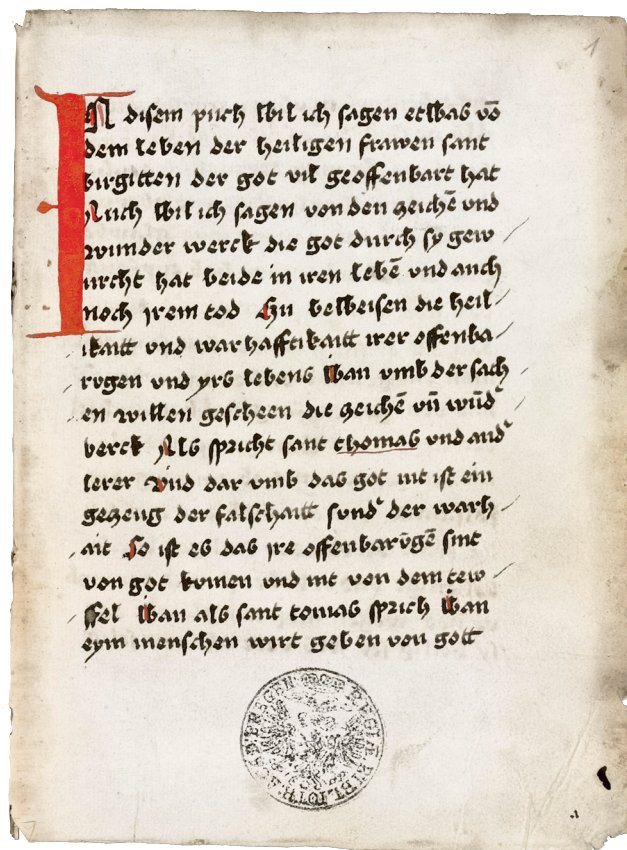 1
IN disem puch wil ich sagen etwas vō
dem leben der heiligen frawen sant
birgitten der got vil geoffenbart hat
Auch wil ich sagen von den zeichē vnd
wunder werck die got durch sy gew
urcht hat beide in iren lebē vnd auch
noch jrem tod Zu beweisen die heil
ikaitt vnd warhafftikaitt irer offenba
rvgen vnd yrs lebens Wan vmb der sach
en willen gescheen die zeichē vn̄ wūd'
berck Als spricht sant thomas vnd and'
lerer Vnd dar vmb das got nit ist ein
gezeug der falschaitt sund' der warh
ait So ist es das jre offenbarūgē sint
von got kvmen vnd nit von dem tew
ffel Wan als sant tomas sprich Wan
eym menschen wirt geben von gott